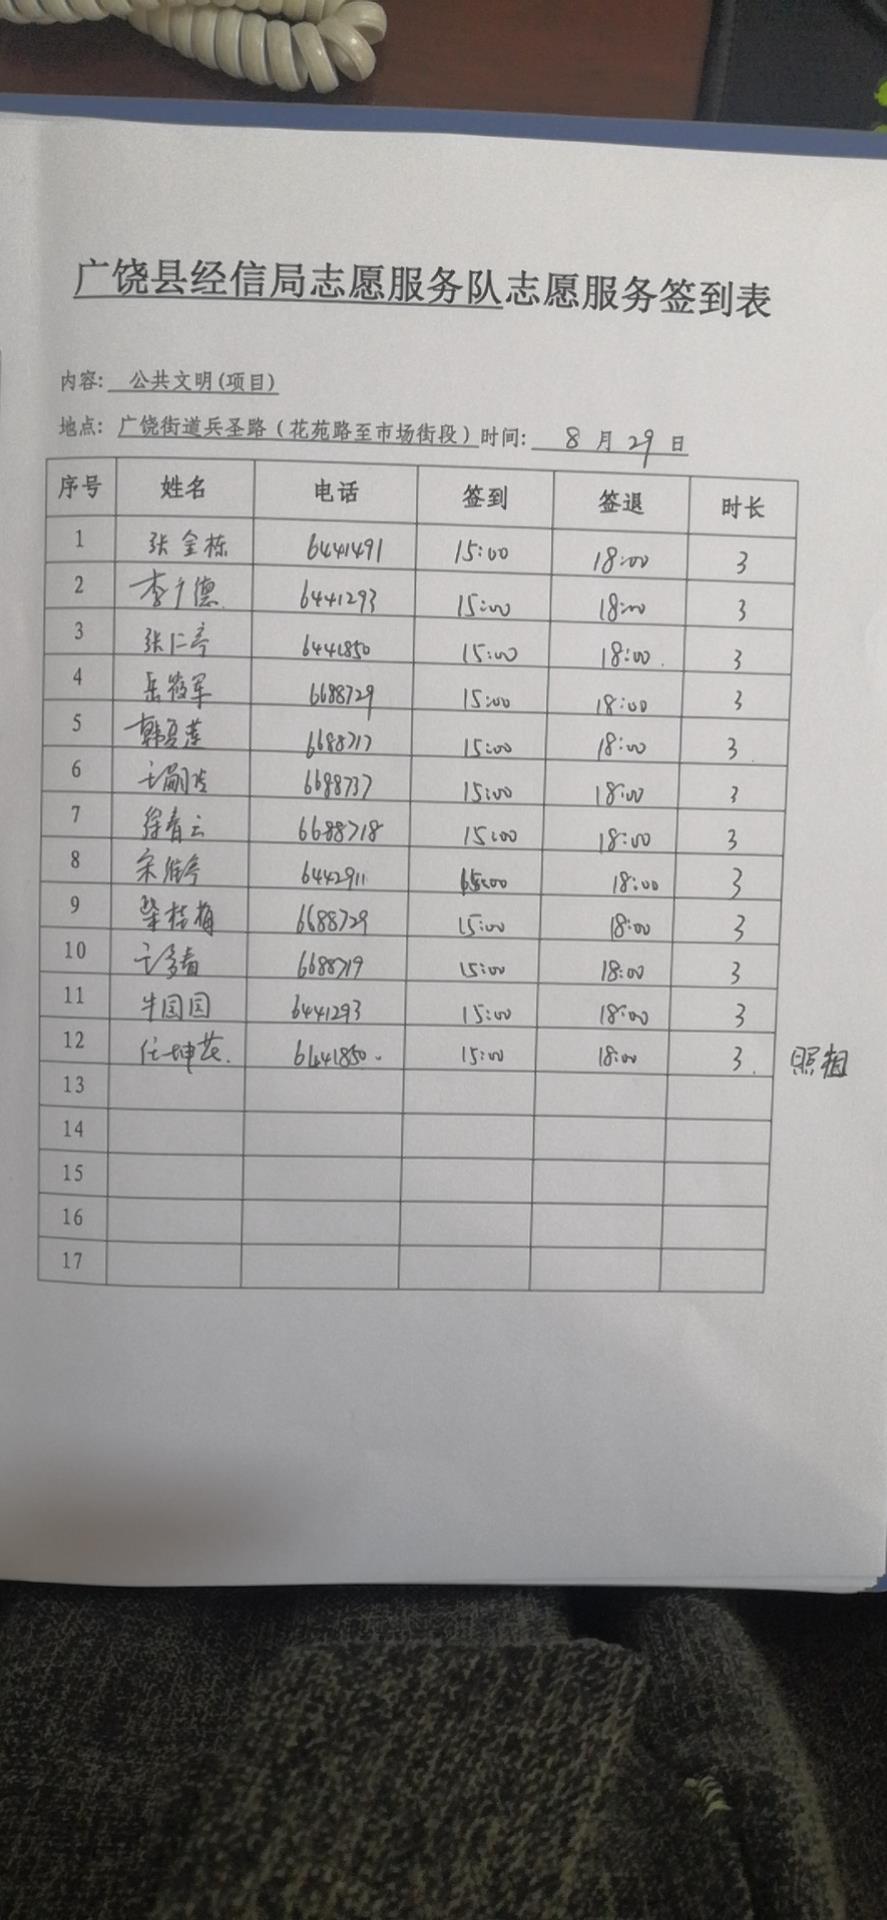 广饶县经信局志愿服务队志愿服务签到表
内容: 公共文明(项目)
地点: 广饶街道兵圣路（花苑路至市场街段）时间: 8 月 29 日
序号 姓名 电话 签到 签退 时长
1 张金栋 6441491 15:00 18:00 3
2 李广德 6441293 15:00 18:00 3
3 张仁亭 6441850 15:00 18:00 3
4 岳筱军 6688729 15:00 18:00 3
5 韩夏莲 6688717 15:00 18:00 3
6 6688737 15:00 18:00 3
7 徐春云 6688718 15:00 18:00 3
8 6442911 15:00 18:00 3
9 柴桂梅 6688729 15:00 18:00 3
10 6688719 15:00 18:00 3
11 牛国园 6441293 15:00 18:00 3
12 任坤花. 6441850. 15:00 18:00 3. 照相
13
14
15
16
17